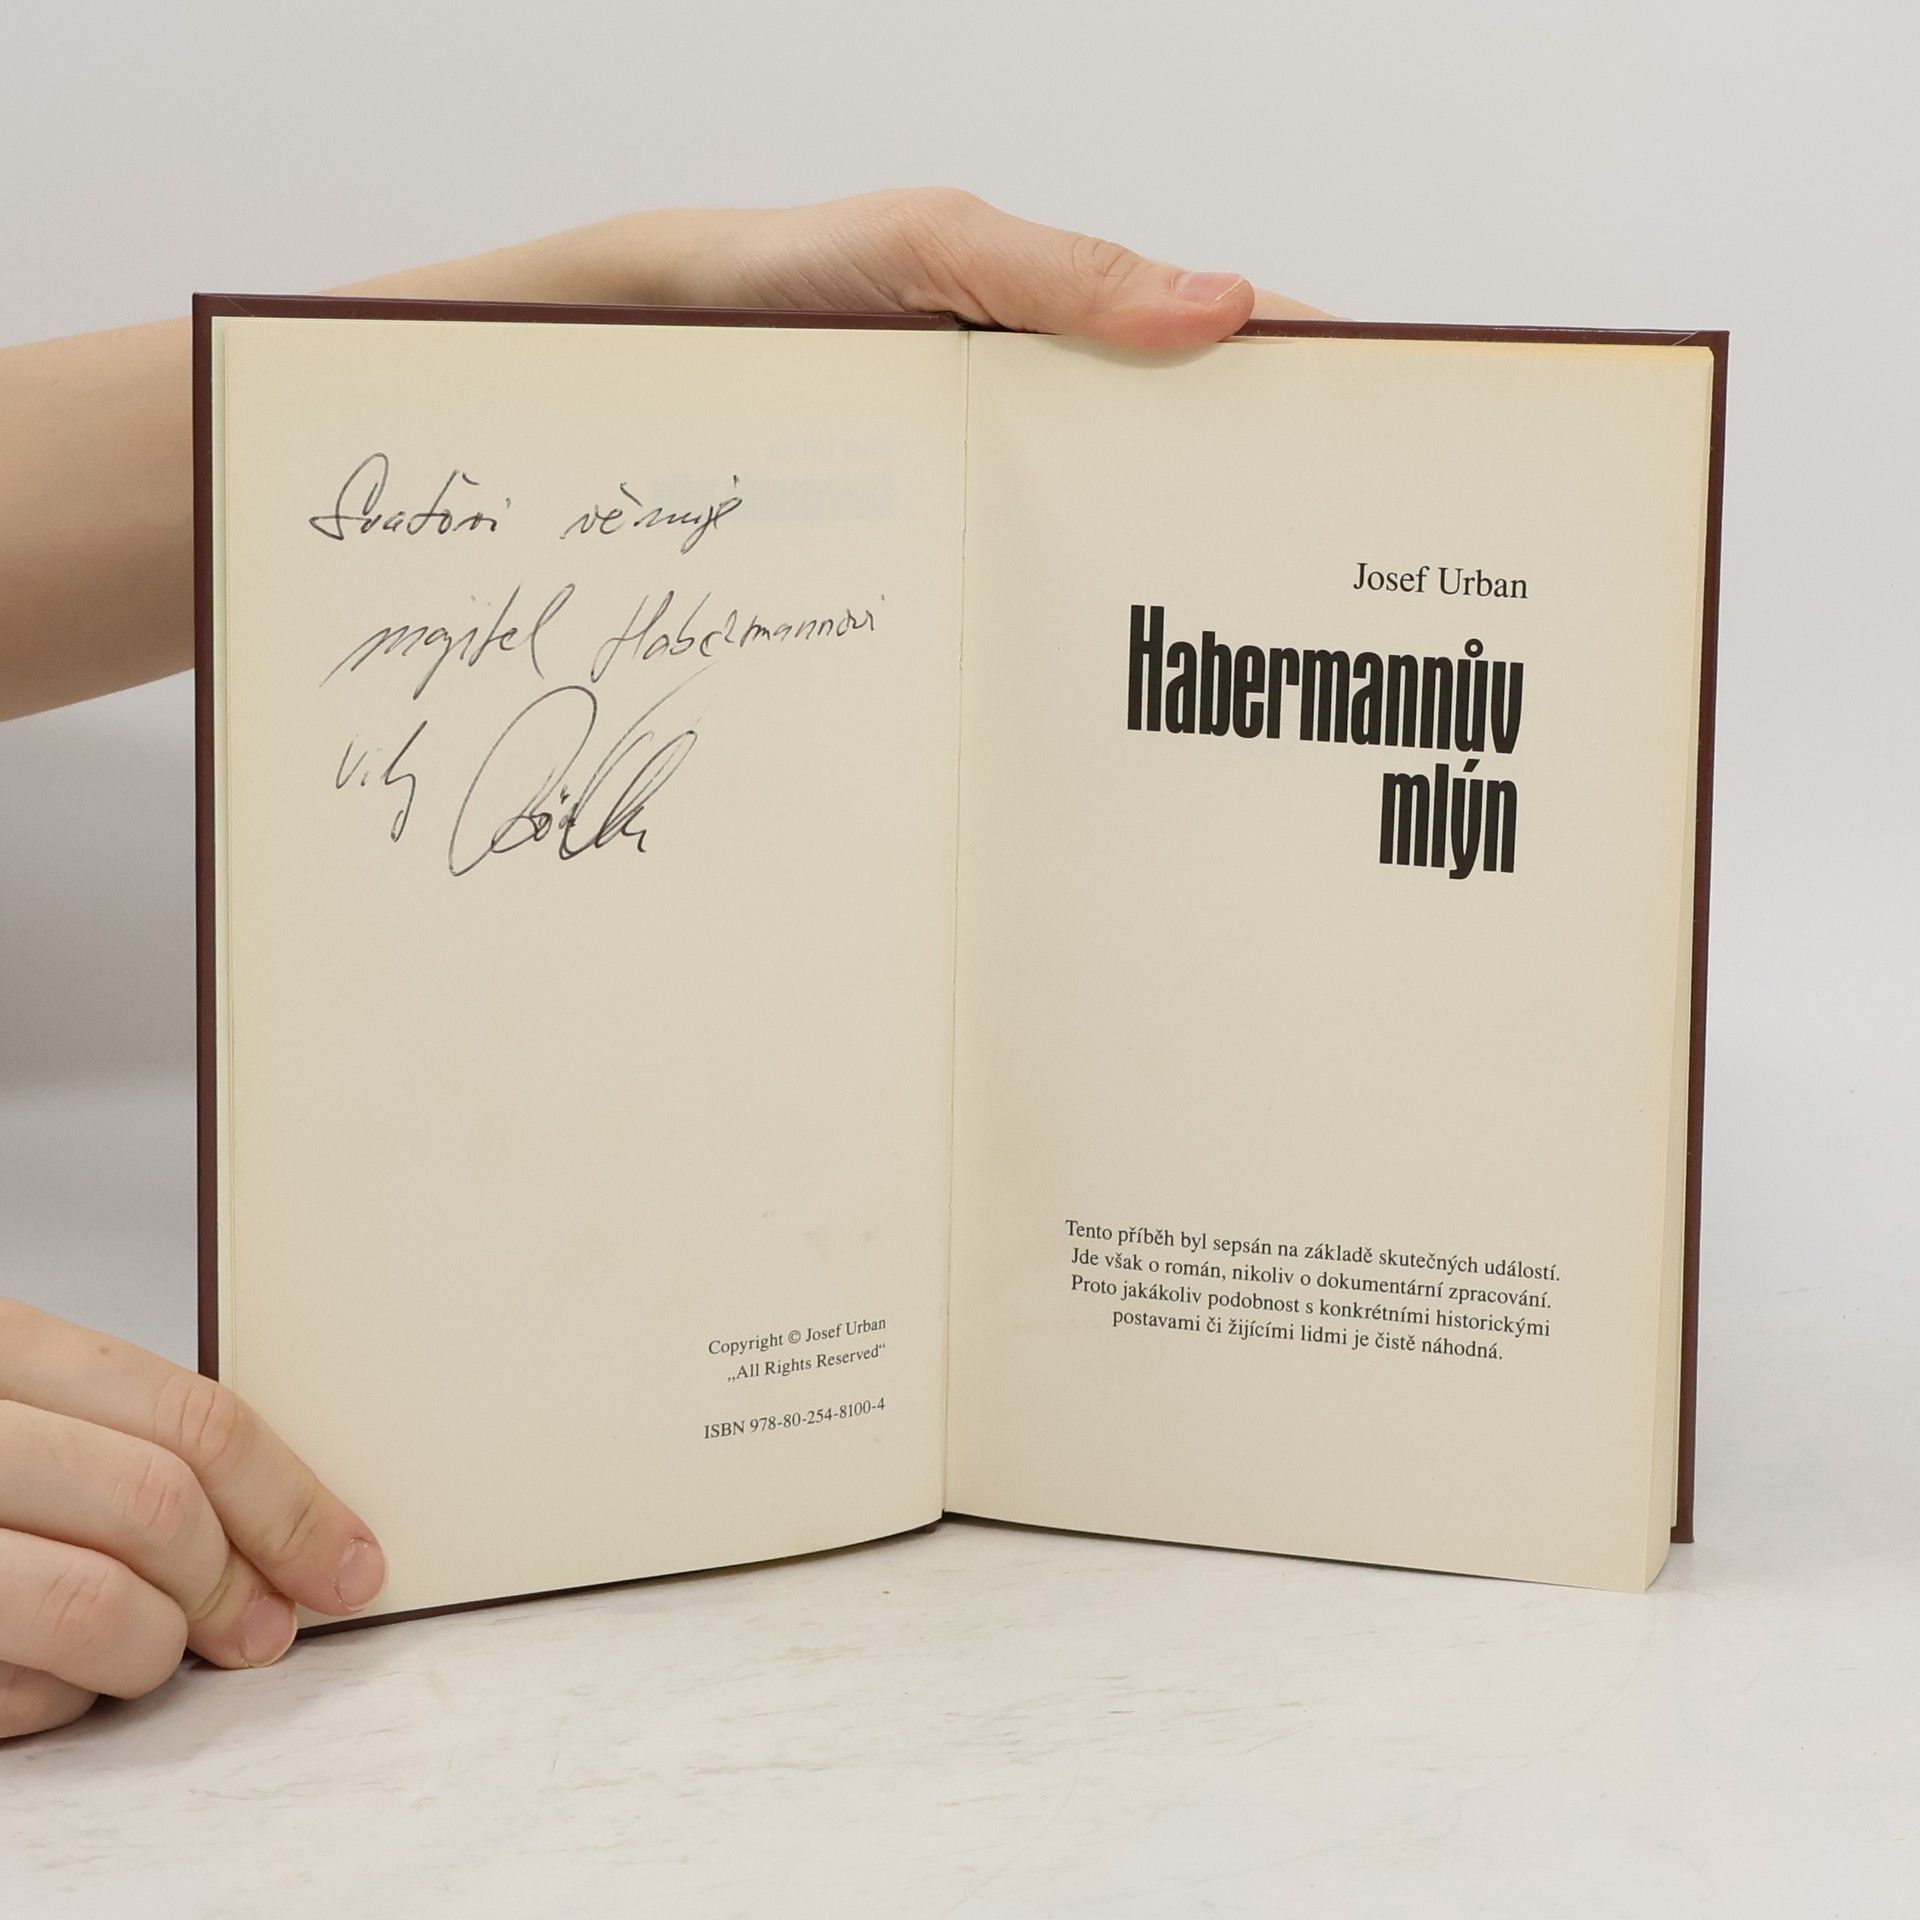 Svaťovi věnuje
majitel Habermannovi
vily
Copyright © Josef Urban
„All Rights Reserved“
ISBN 978-80-254-8100-4
Josef Urban
Habermannův
mlýn
Tento příběh byl sepsán na základě skutečných událostí.
Jde však o román, nikoliv o dokumentární zpracování.
Proto jakákoliv podobnost s konkrétními historickými
postavami či žijícími lidmi je čistě náhodná.